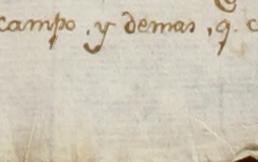 campo, y demas, q.